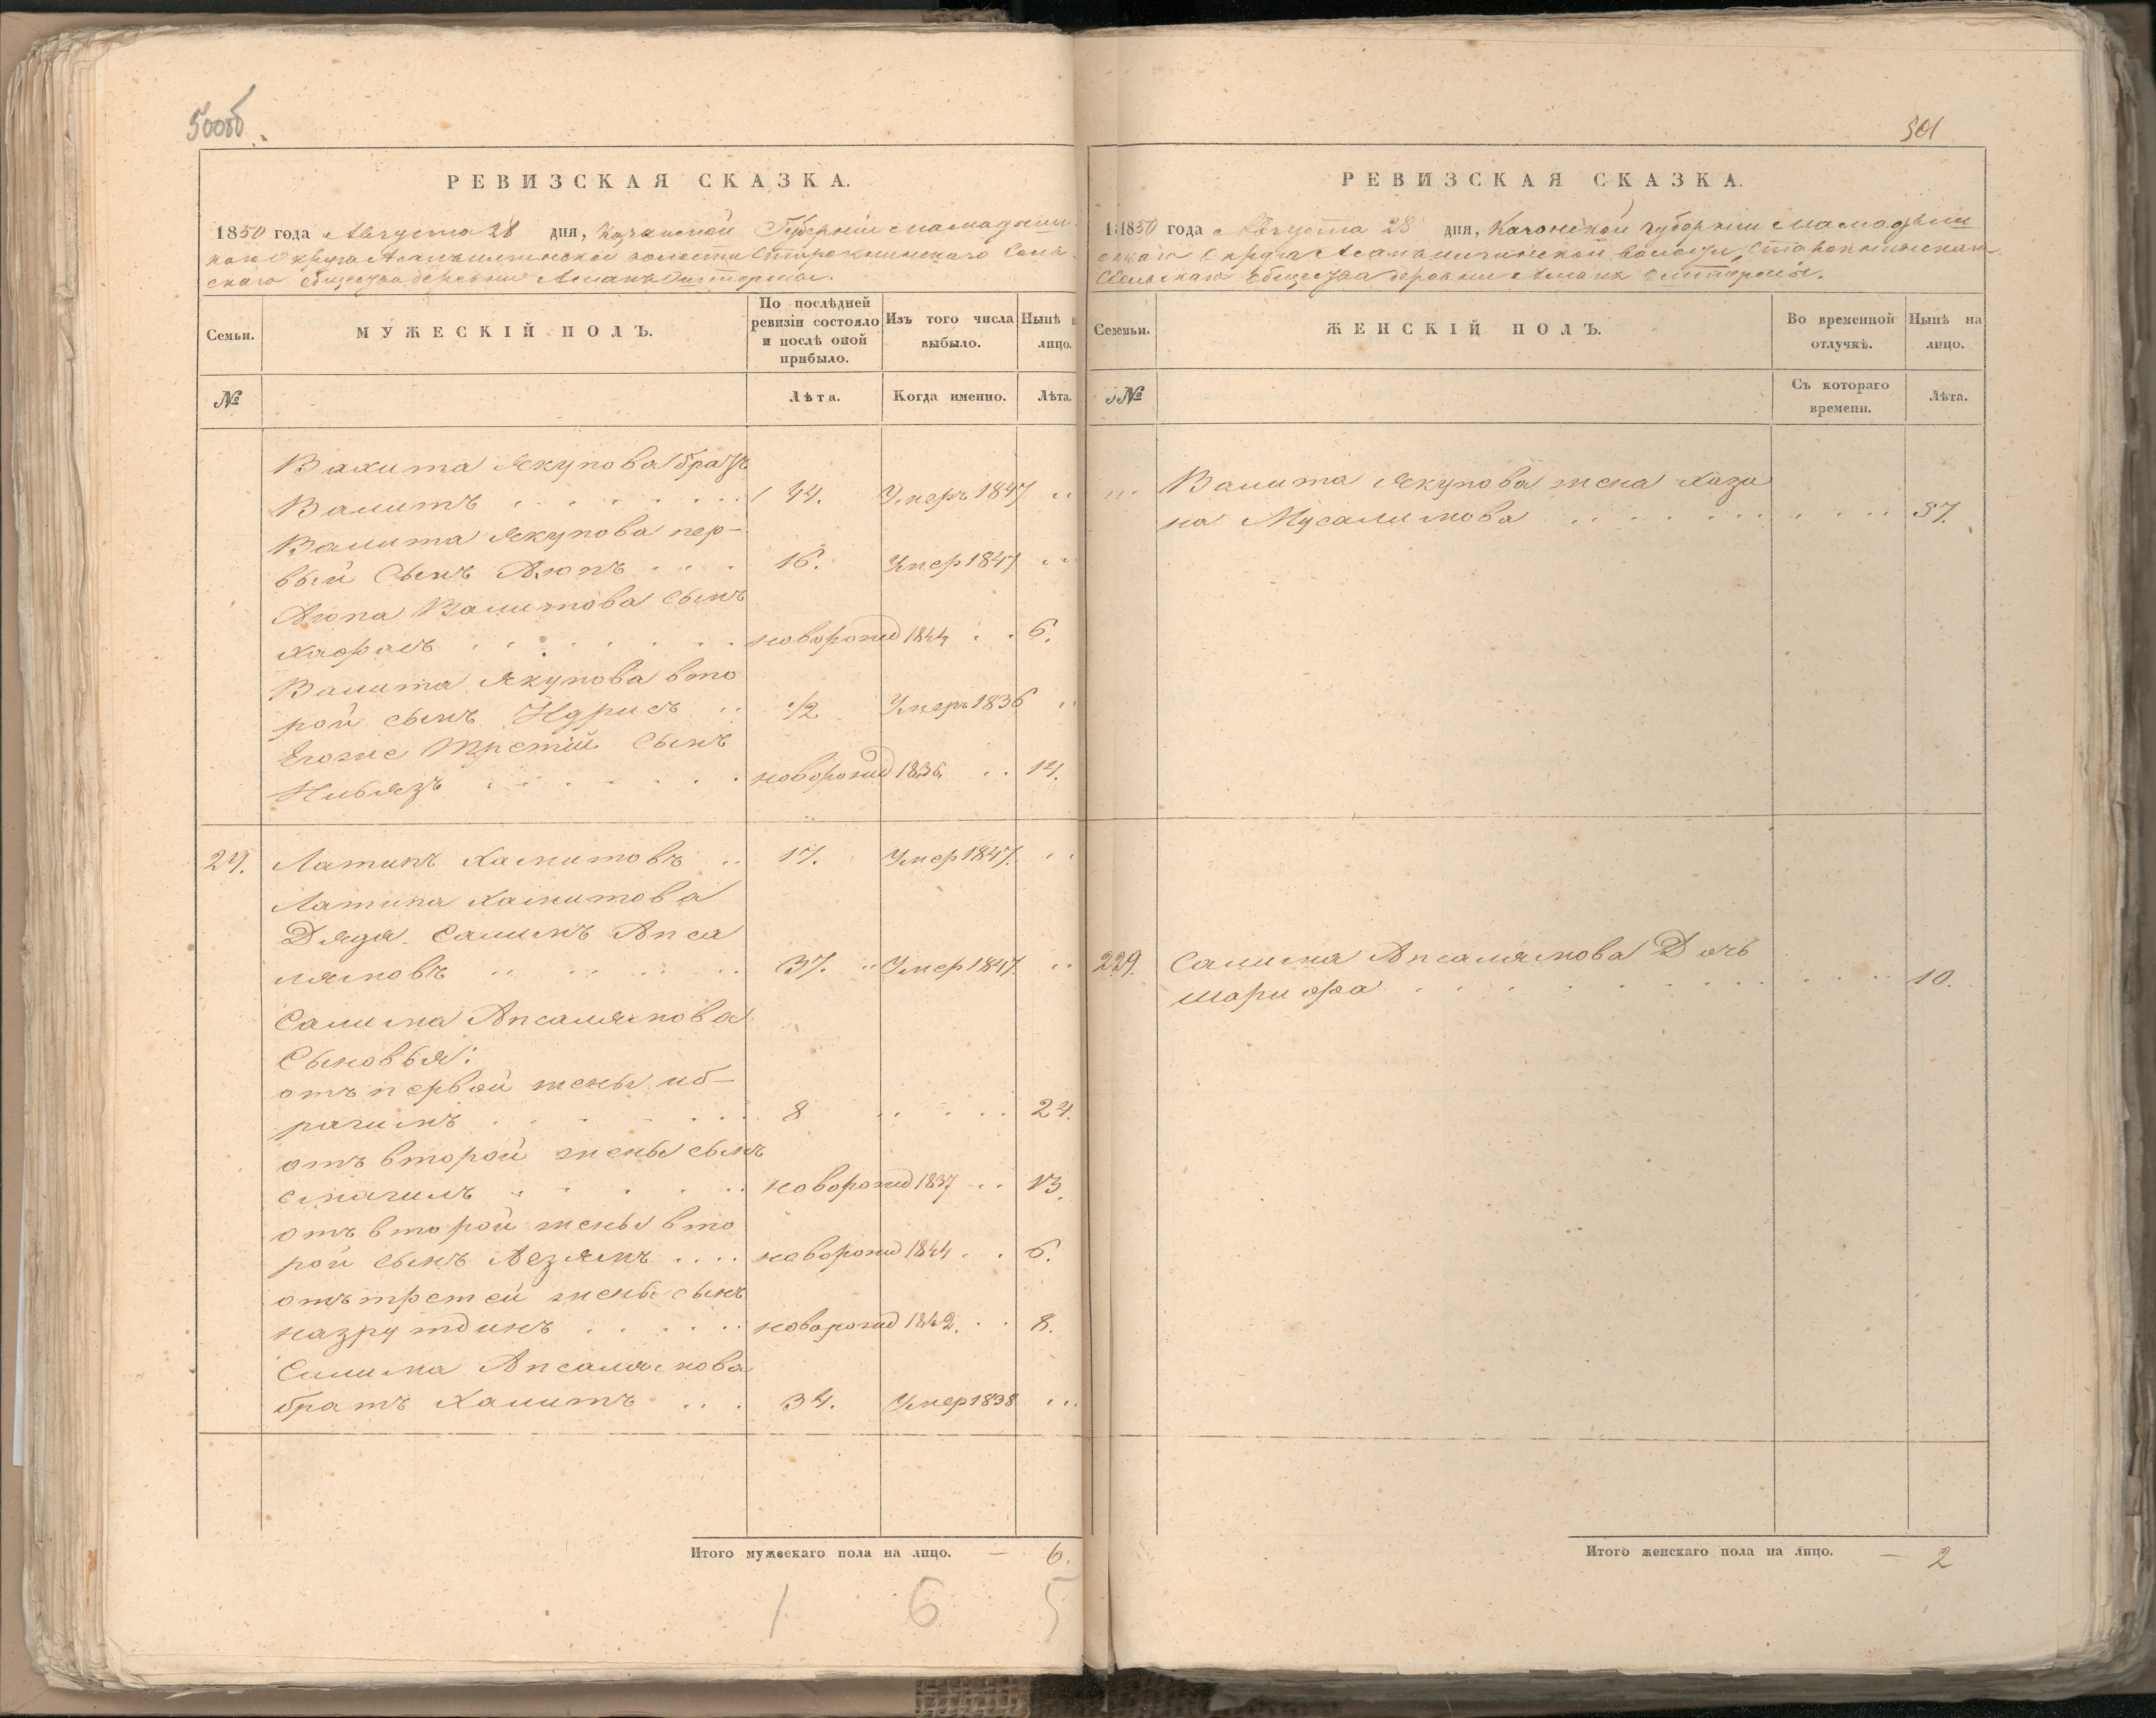 500об
РЕВИЗСКАЯ СКАЗКА.
1850 года Августа 28 дня, Казанской Губернии Мамадыш
скаго Округа волости Старокнинскаго Сель
скаго общества деревни
Семьи.
МУЖЕСКІЙ ПОЛЪ.
По послѣдней ревизіи состояло и послѣ оной прибыло.
Изъ того числа выбыло.
Нынѣ
лицо.
№
Лѣта.
Когда именно.
Лѣта.
Валита Якупова братъ
Валитъ 44. Умеръ 1847
Валита Якупова пер-
вый Сынъ Аюпъ 16. Умер 1847
Аюпа Валитова Сынъ
новорожд 1844 6.
Валита Якупова вто
рой сынъ Идрисъ 1/2 Умеръ 1836
Егоже Третій Сынъ
Нибязъ новорожд 1836 14.
29. Латипъ Хамитовъ 17. Умер 1847.
Латипа Хамитова
Дядя Салимъ Апса
лямовъ 37. Умер 1847
Салима Апсалямова
Сыновья:
отъ первой жены иб-
рагимъ 8 24.
отъ второй жены сынъ
смагилъ новорожд 1837 13.
отъ второй жены вто
рой сынъ Аезямъ новорожд 1844 6.
отъ третей жены сынъ
назрутдинъ новорожд 1842. 8.
Салима Апсалямова
братъ Хамитъ 34. Умер 1838
Итого мужескаго пола на лицо. — 6.
1 6 5
501
РЕВИЗСКАЯ СКАЗКА.
1850 года Августа 28 дня, Казанской губернии Мамадыш
скаго Округа волости, Старокнинскаго
Сельскаго общества деревни
Семьи.
ЖЕНСКІЙ ПОЛЪ.
Во временной отлучкѣ.
Нынѣ на лицо.
№
Съ котораго времени.
Лѣта.
Валита Якупова жена Хази
на Мусалимова 37.
29. Салима Апсалямова Дочь
Шарифа 10.
Итого женскаго пола на лицо. — 2